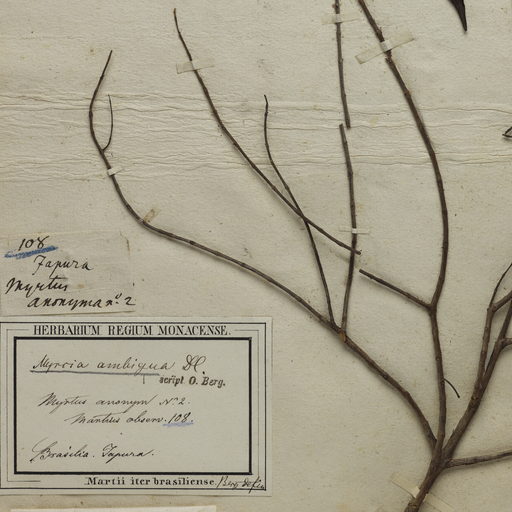 108
Japura
Myrtus
anonyma nº 2
HERBARIUM REGIUM MONACENSE.
Myrcia ambigua DC.
script. O. Berg.
Myrtus anonym Nº 2.
Martius observ. 108.
Brasilia. Japura.
Martii iter brasiliense.
Berg